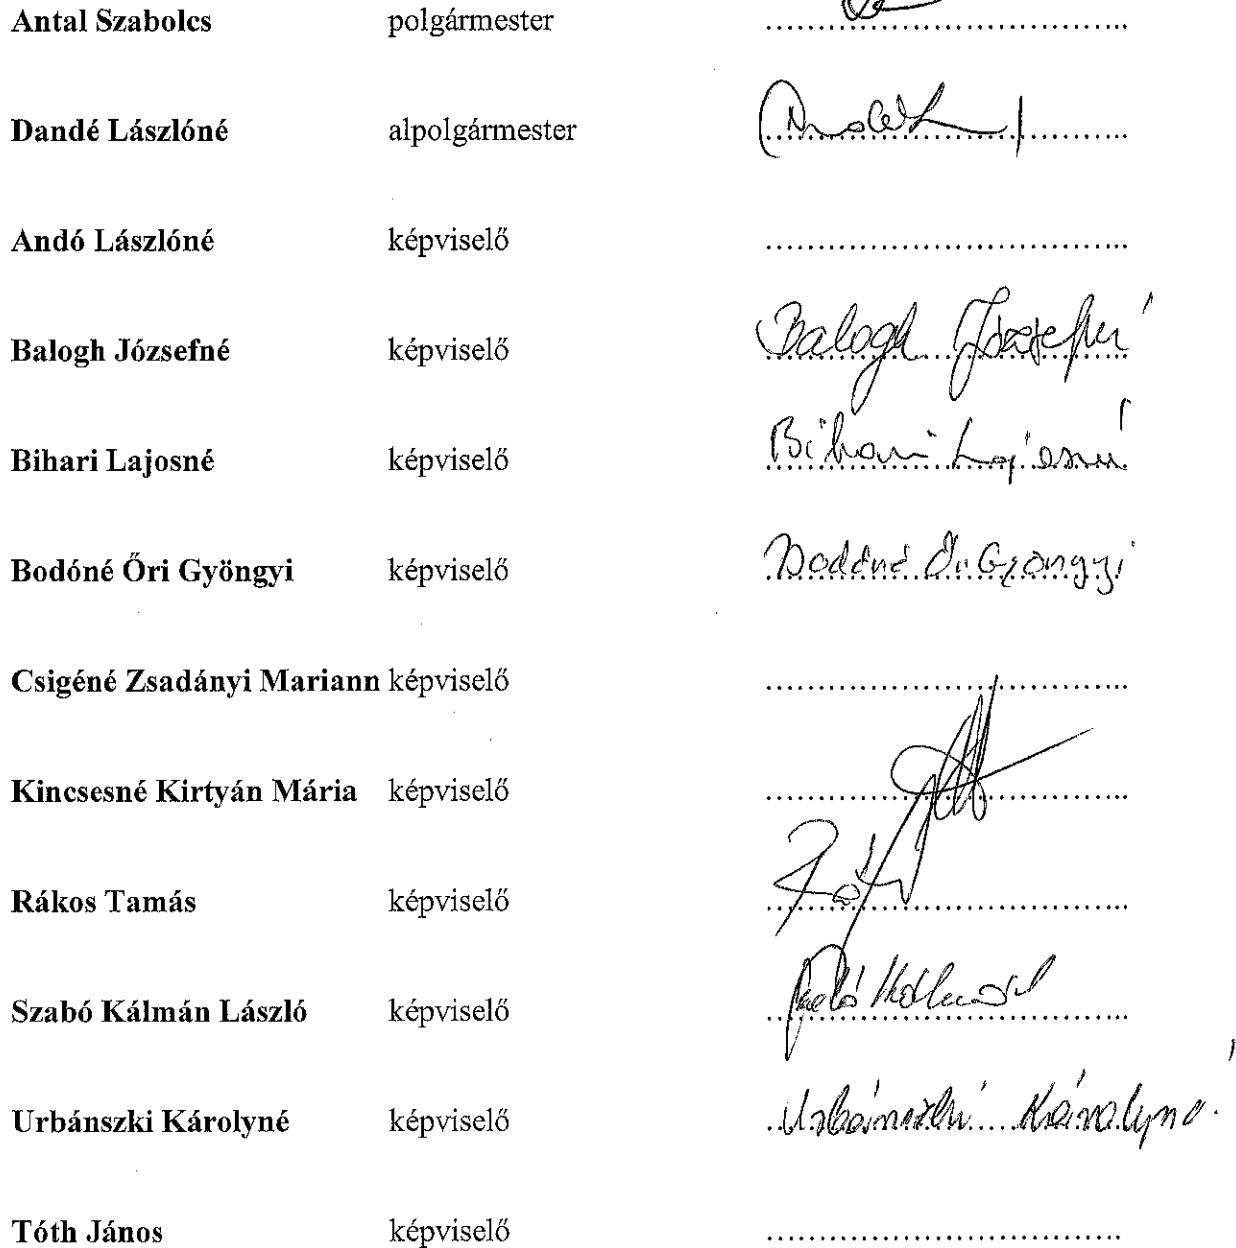 Antal Szabolcs polgármester
Dandé Lászlóné alpolgármester
Andó Lászlóné képviselő
Balogh Józsefné képviselő Balogh Józsefné
Bihari Lajosné képviselő Bihari Lajosné
Bodóné Őri Gyöngyi képviselő Bodóné Őri Gyöngyi
Csigéné Zsadányi Mariann képviselő
Kincsesné Kirtyán Mária képviselő
Rákos Tamás képviselő
Szabó Kálmán László képviselő
Urbánszki Károlyné képviselő Urbánszki Károlyné
Tóth János képviselő